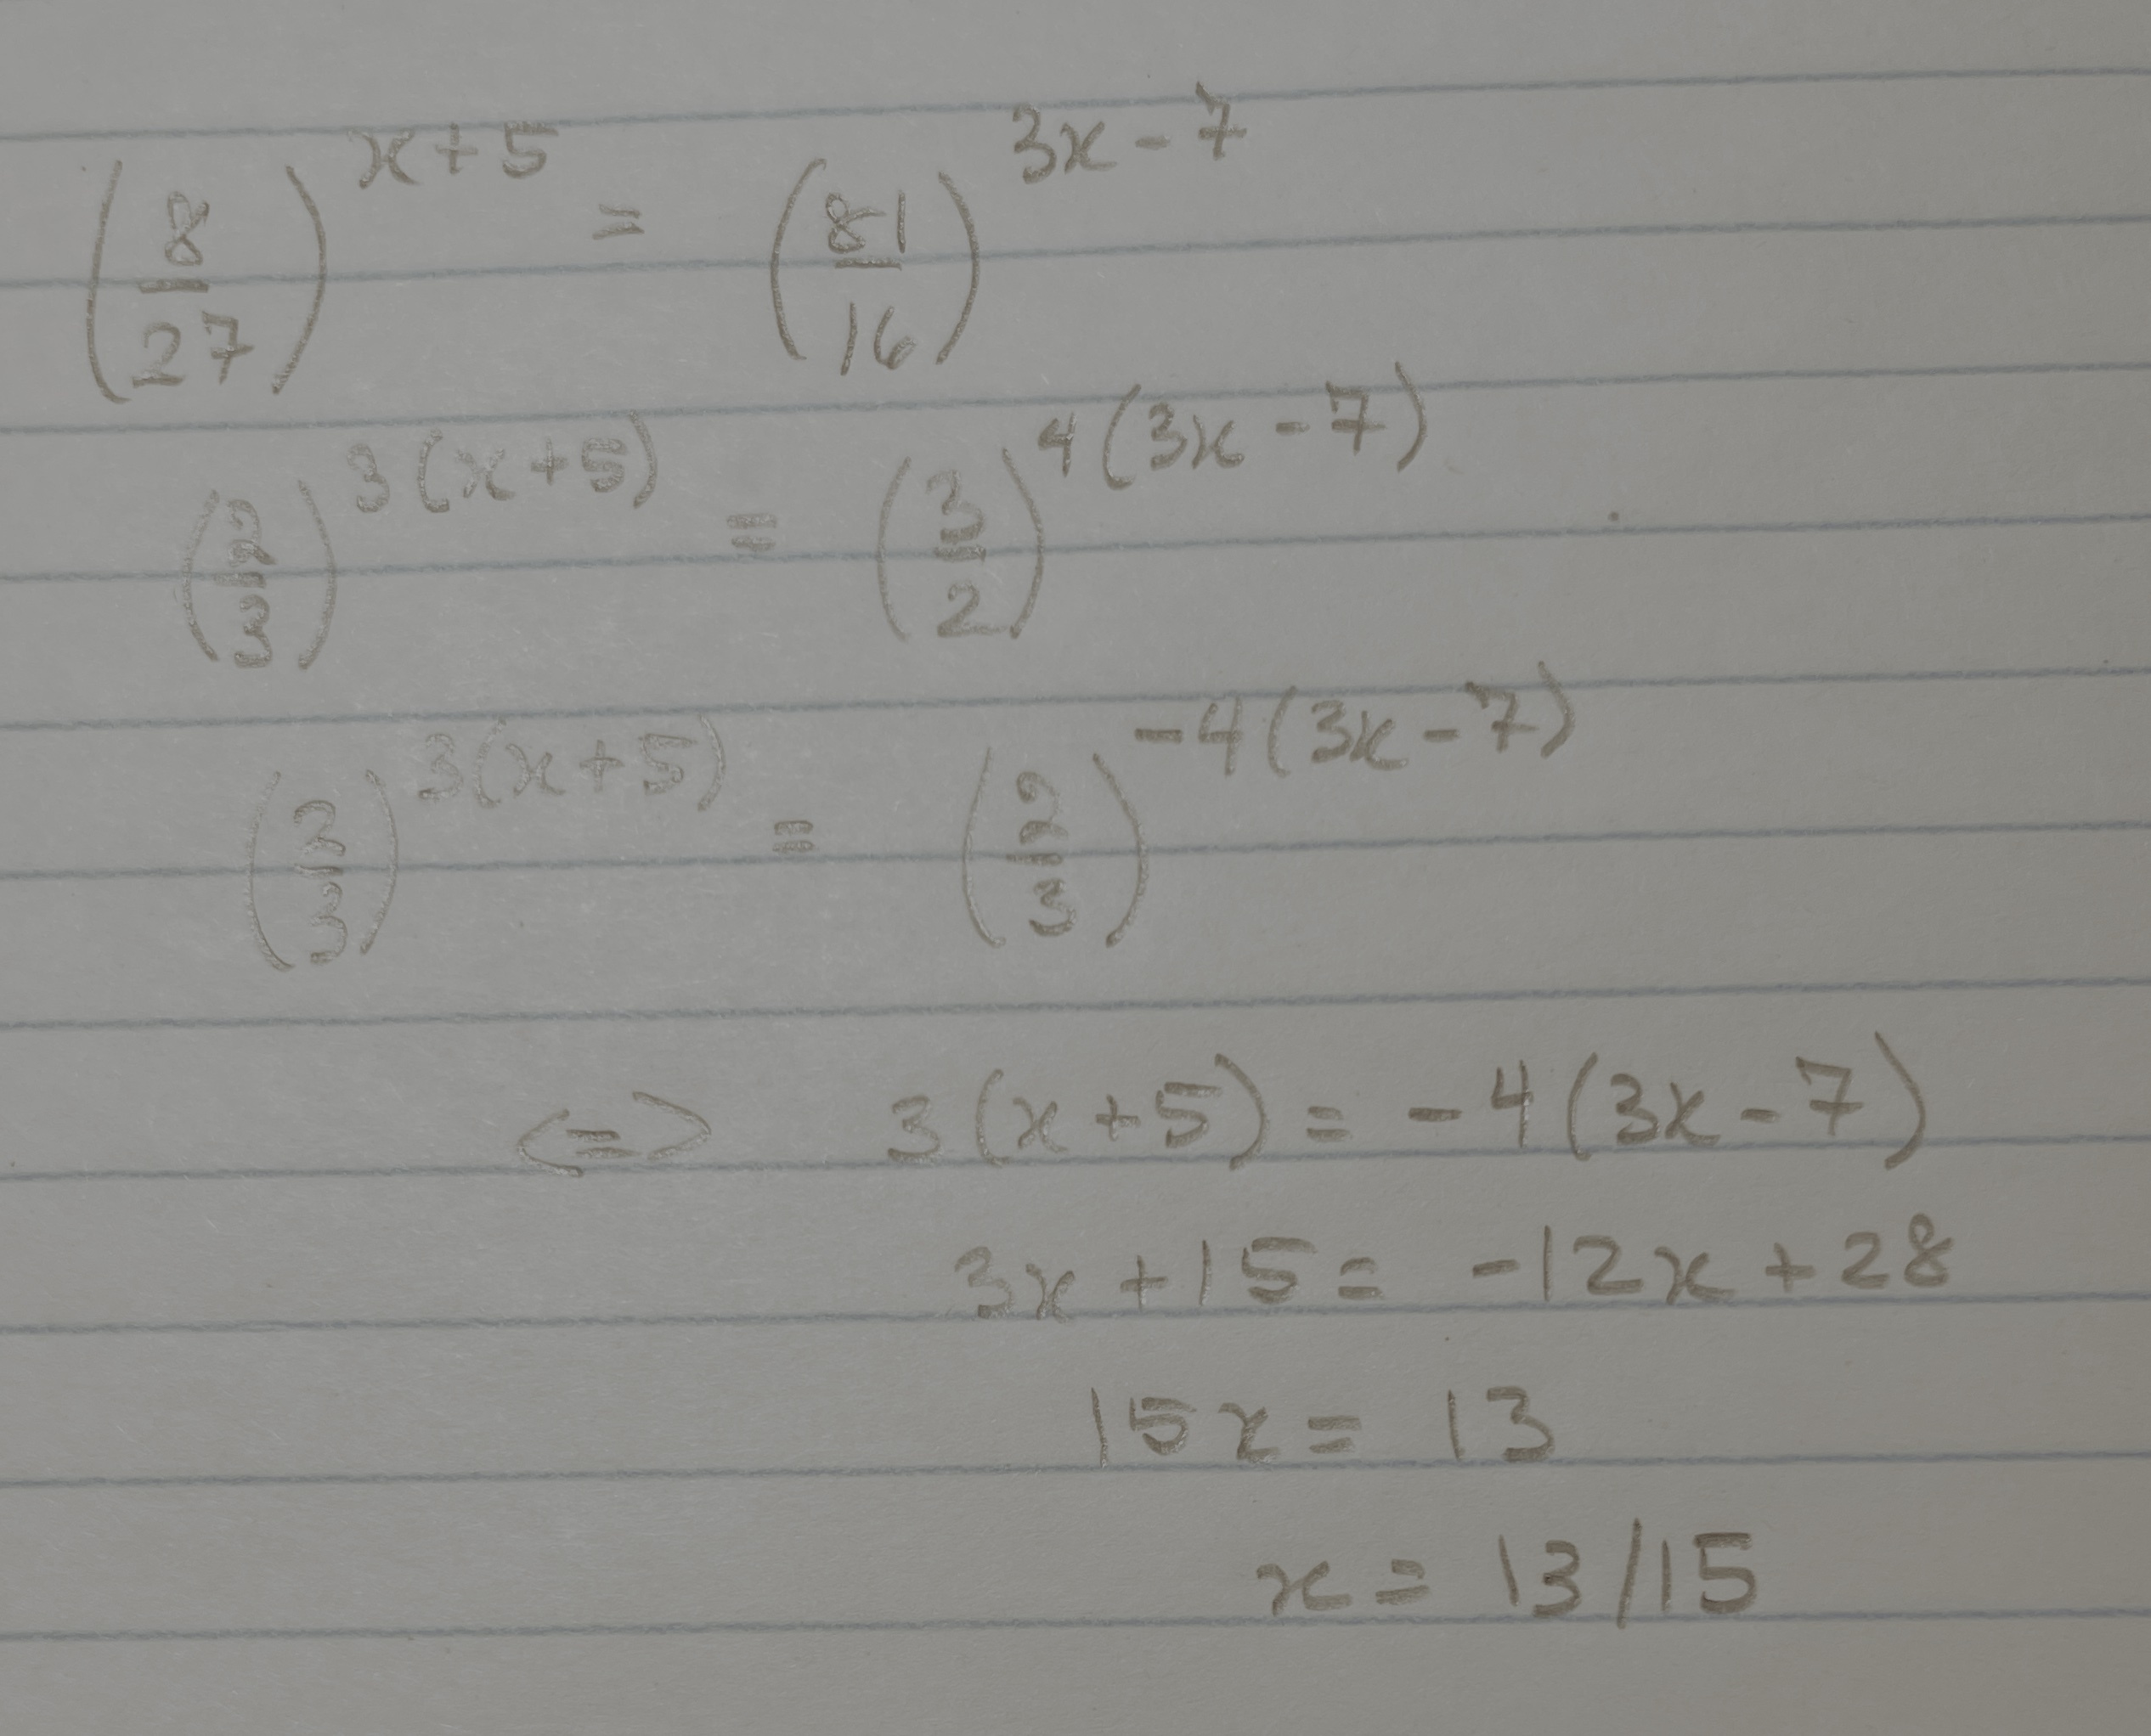 (8/27)^(x+5) = (81/16)^(3x-7)
(2/3)^(3(x+5)) = (3/2)^(4(3x-7))
(2/3)^(3(x+5)) = (2/3)^(-4(3x-7))
<=> 3(x+5) = -4(3x-7)
3x+15 = -12x+28
15x = 13
x = 13/15